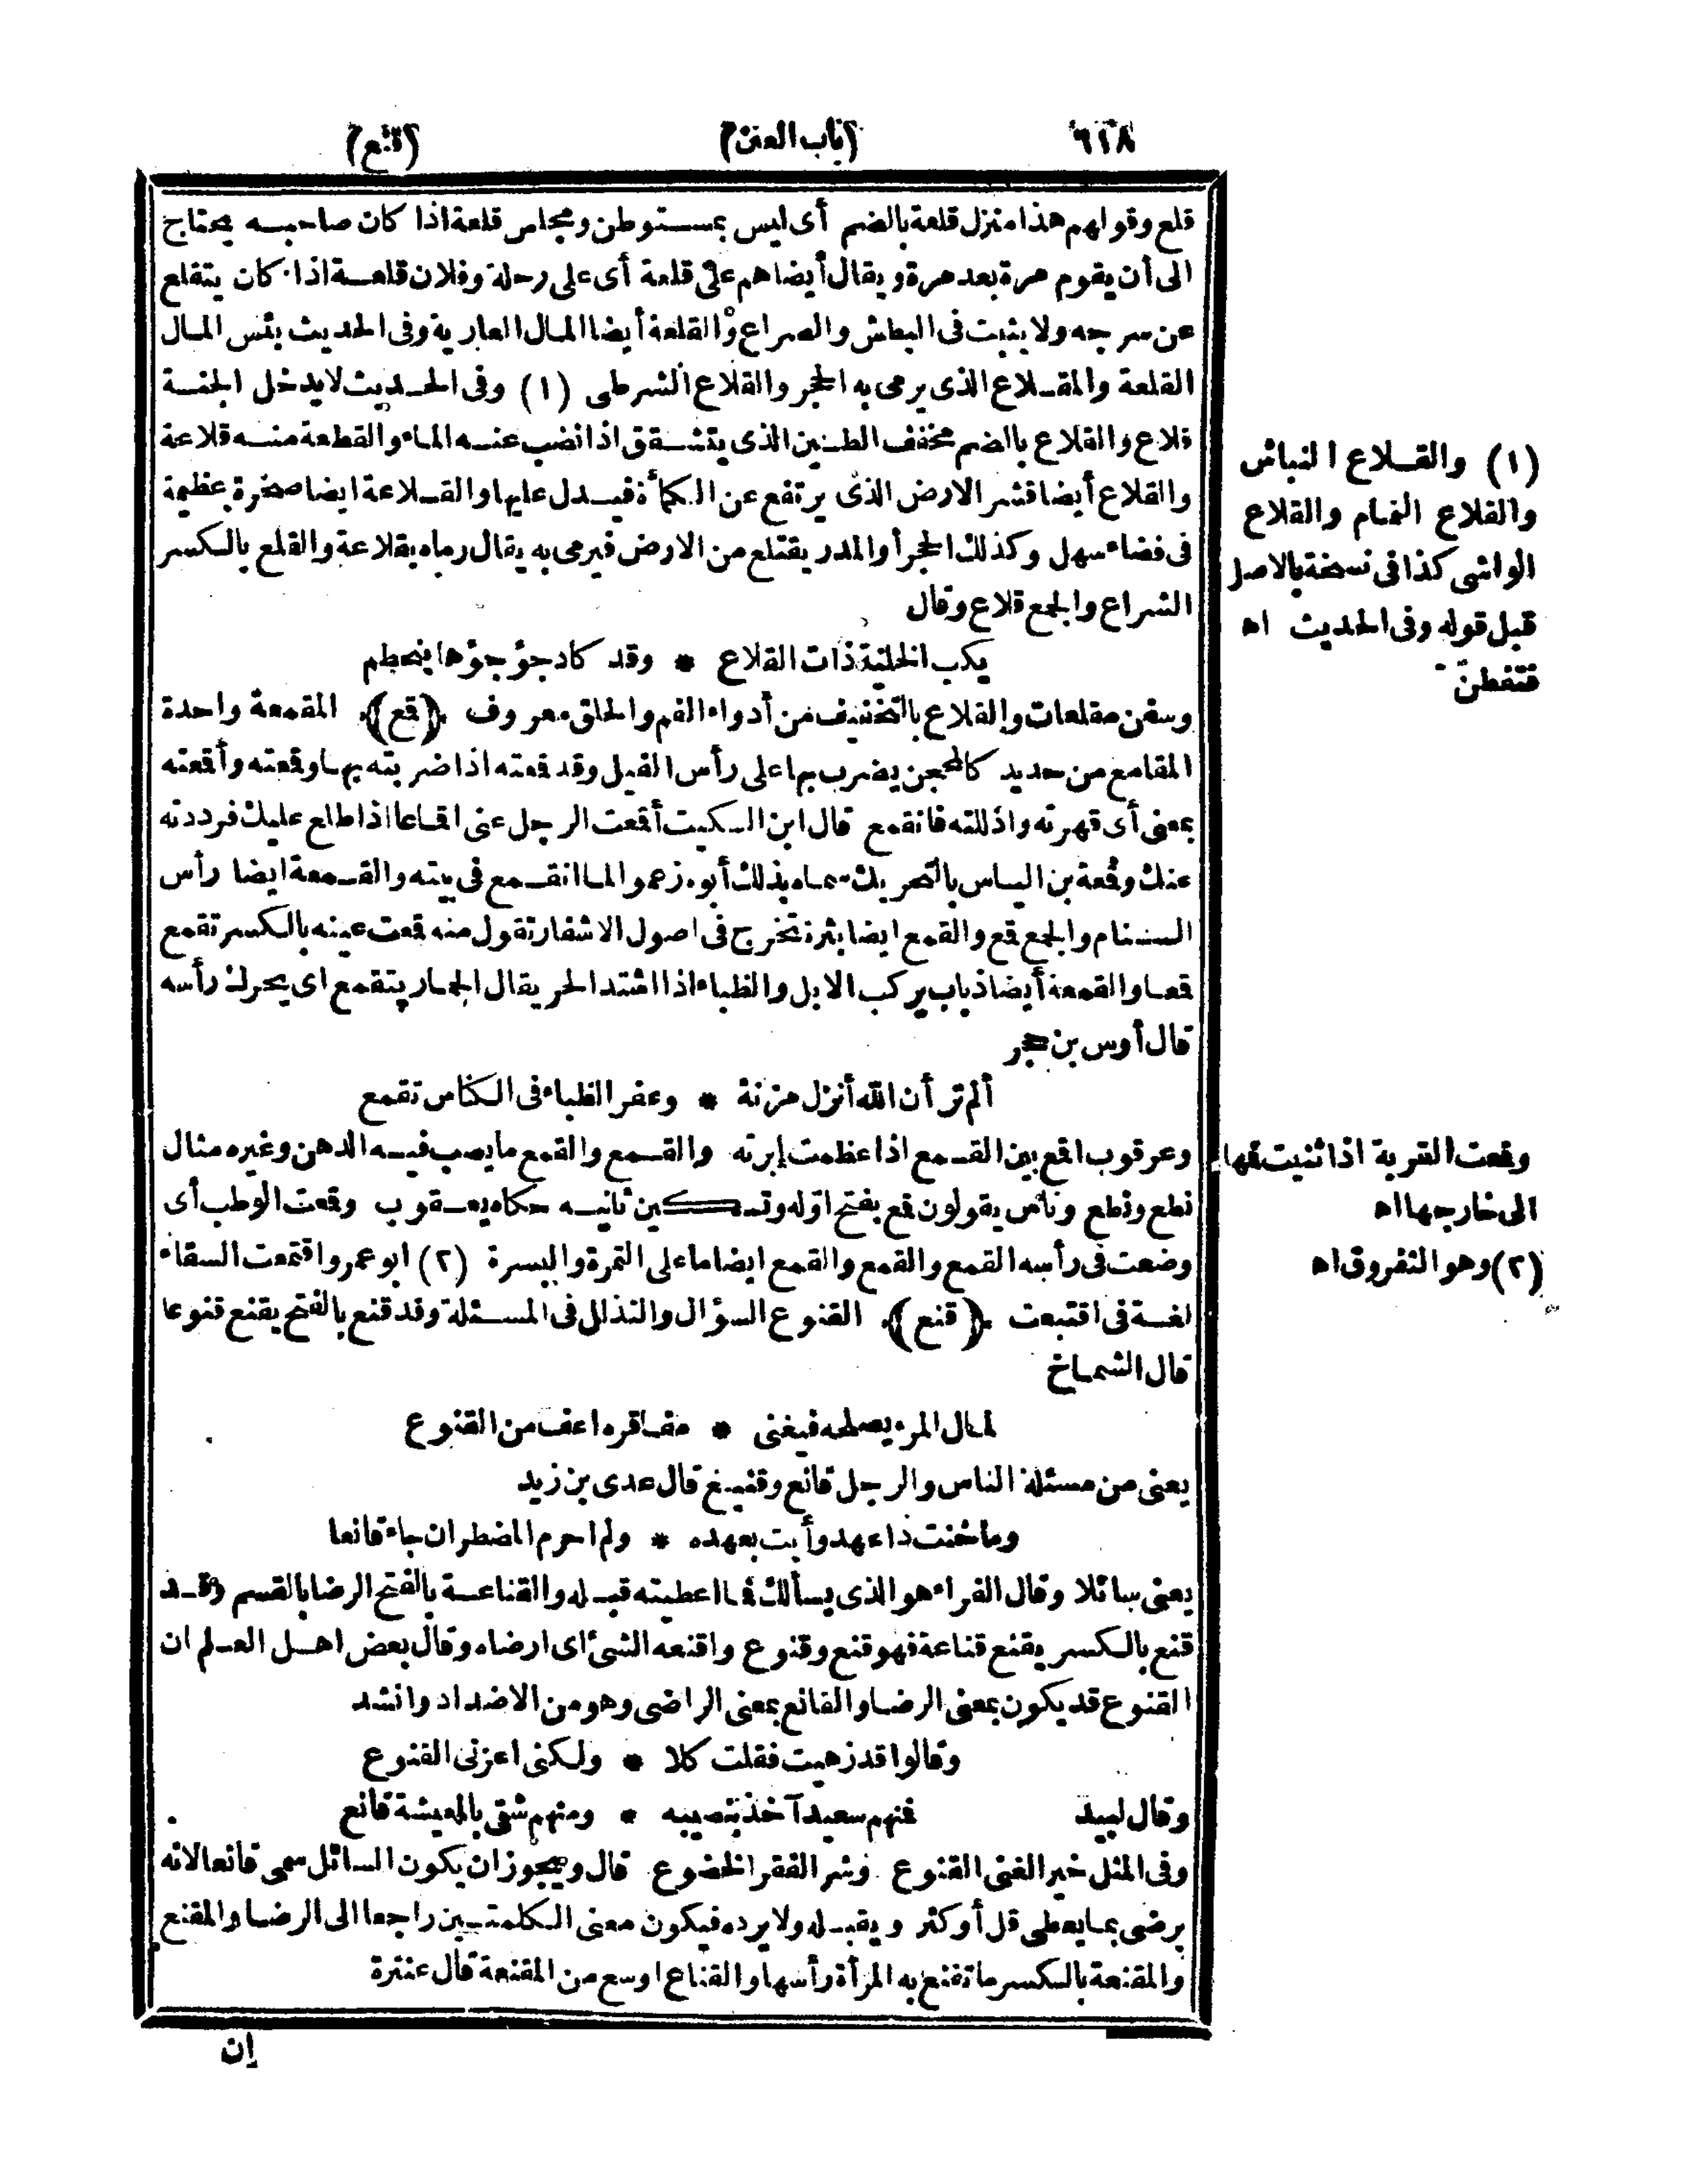 ٦١٨ (باب العين) (قنع)
قلع وقولهم هذا منزل قلعة بالضم أى ليس بمستوطن ومجلس قلعة اذا كان صاحبه يحتاج
الى أن يقوم مرة بعد مرة ويقال أيضا هم على قلعة أى على رحلة وفلان قلعة اذا كان يتقلع
عن سرجه ولا يثبت فى البطش والصراع والقلعة أيضا المال العارية وفى الحديث بئس المال
القلعة والمقلاع الذى يرمى به الحجر والقلاع الشرطى (١) وفى الحديث لا يدخل الجنة
قلاع والقلاع بالضم مخفف الطين الذى يتشقق اذا نضب عنه الماء والقطعة منه قلاعة
والقلاع أيضا قشر الارض الذى يرتفع عن الكمأة فيدل عليها والقلاعة ايضا صخرة عظيمة
فى فضاء سهل وكذلك الحجر أو المدر يقتلع من الارض فيرمى به يقال رماه بقلاعة والقلع بالكسر
الشراع والجمع قلاع وقال
يكب الخلية ذات القلاع * وقد كاد جؤجؤها ينحطم
وسفن مقلعات والقلاع بالتخفيف من أدواء الفم والحلق معروف ﴿قمع﴾ المقمعة واحدة
المقامع من حديد كالمحجن يضرب بها على رأس الفيل وقد قمعته اذا ضربته بها وقمعته وأقمعته
بمعنى أى قهرته واذللته فانقمع قال ابن السكيت أقمعت الرجل عنى اقماعا اذا طلع عليك فرددته
عنك وقمعة بن الياس بالتحريك سماه بذلك أبوه زعموا لما انقمع فى بيته والقمعة ايضا رأس
السنام والجمع قمع والقمع ايضا بثرة تخرج فى اصول الاشفار تقول منه قمعت عينه بالكسر تقمع
قمعا والقمعة أيضا ذباب يركب الابل والظباء اذا اشتد الحر يقال الحمار يتقمع اى يحرك رأسه
قال أوس بن حجر
ألم تر أن الله أنزل مزنة * وعفر الظباء فى الكناس تقمع
وعرقوب اقمع بين القمع اذا عظمت إبرته والقمع والقمع ما يصب فيه الدهن وغيره مثال
نطع ونطع وناس يقولون قمع بفتح اوّله وتسكين ثانيه حكاه يعقوب وقمعت الوطب أى
وضعت فى رأسه القمع والقمع والقمع ايضا ما على التمرة والبسرة (٢) ابو عمرو اقتمعت السقاء
لغة فى اقتبعت ﴿قنع﴾ القنوع السؤال والتذلل فى المسئلة وقد قنع بالفتح يقنع قنوعا
قال الشماخ
لمال المرء يصلحه فيغنى * مفاقره اعف من القنوع
يعنى من مسئلة الناس والرجل قانع وقنيع قال عدى بن زيد
وما خنت ذا عهد وأبت بعهده * ولم احرم المضطر ان جاء قانعا
يعنى سائلا وقال الفراء هو الذى يسألك فما اعطيته قبله والقناعة بالفتح الرضا بالقسم وقد
قنع بالكسر يقنع قناعة فهو قنع وقنوع واقنعه الشئ اى ارضاه وقال بعض اهل العلم ان
القنوع قد يكون بمعنى الرضا والقانع بمعنى الراضى وهو من الاضداد وانشد
وقالوا قد زهيت فقلت كلا * ولكنى اعزنى القنوع
وقال لبيد فمنهم سعيد آخذ بنصيبه * ومنهم شقى بالمعيشة قانع
وفى المثل خير الغنى القنوع وشر الفقر الخضوع قال ويجوز ان يكون السائل سمى قانعا لانه
يرضى بما يعطى قل أو كثر ويقبله ولا يرده فيكون معنى الكلمتين راجعا الى الرضا والمقنع
والمقنعة بالكسر ما تقنع به المرأة رأسها والقناع اوسع من المقنعة قال عنترة
إن
(١) والقلاع النباش
والقلاع النمام والقلاع
الواشى كذا فى نسخة بالاصل
قبل قوله وفى الحديث اه
فتفطنّ
وقمعت القربة اذا ثنيت فمها
الى خارجها اه
(٢) وهو الثفروق اه